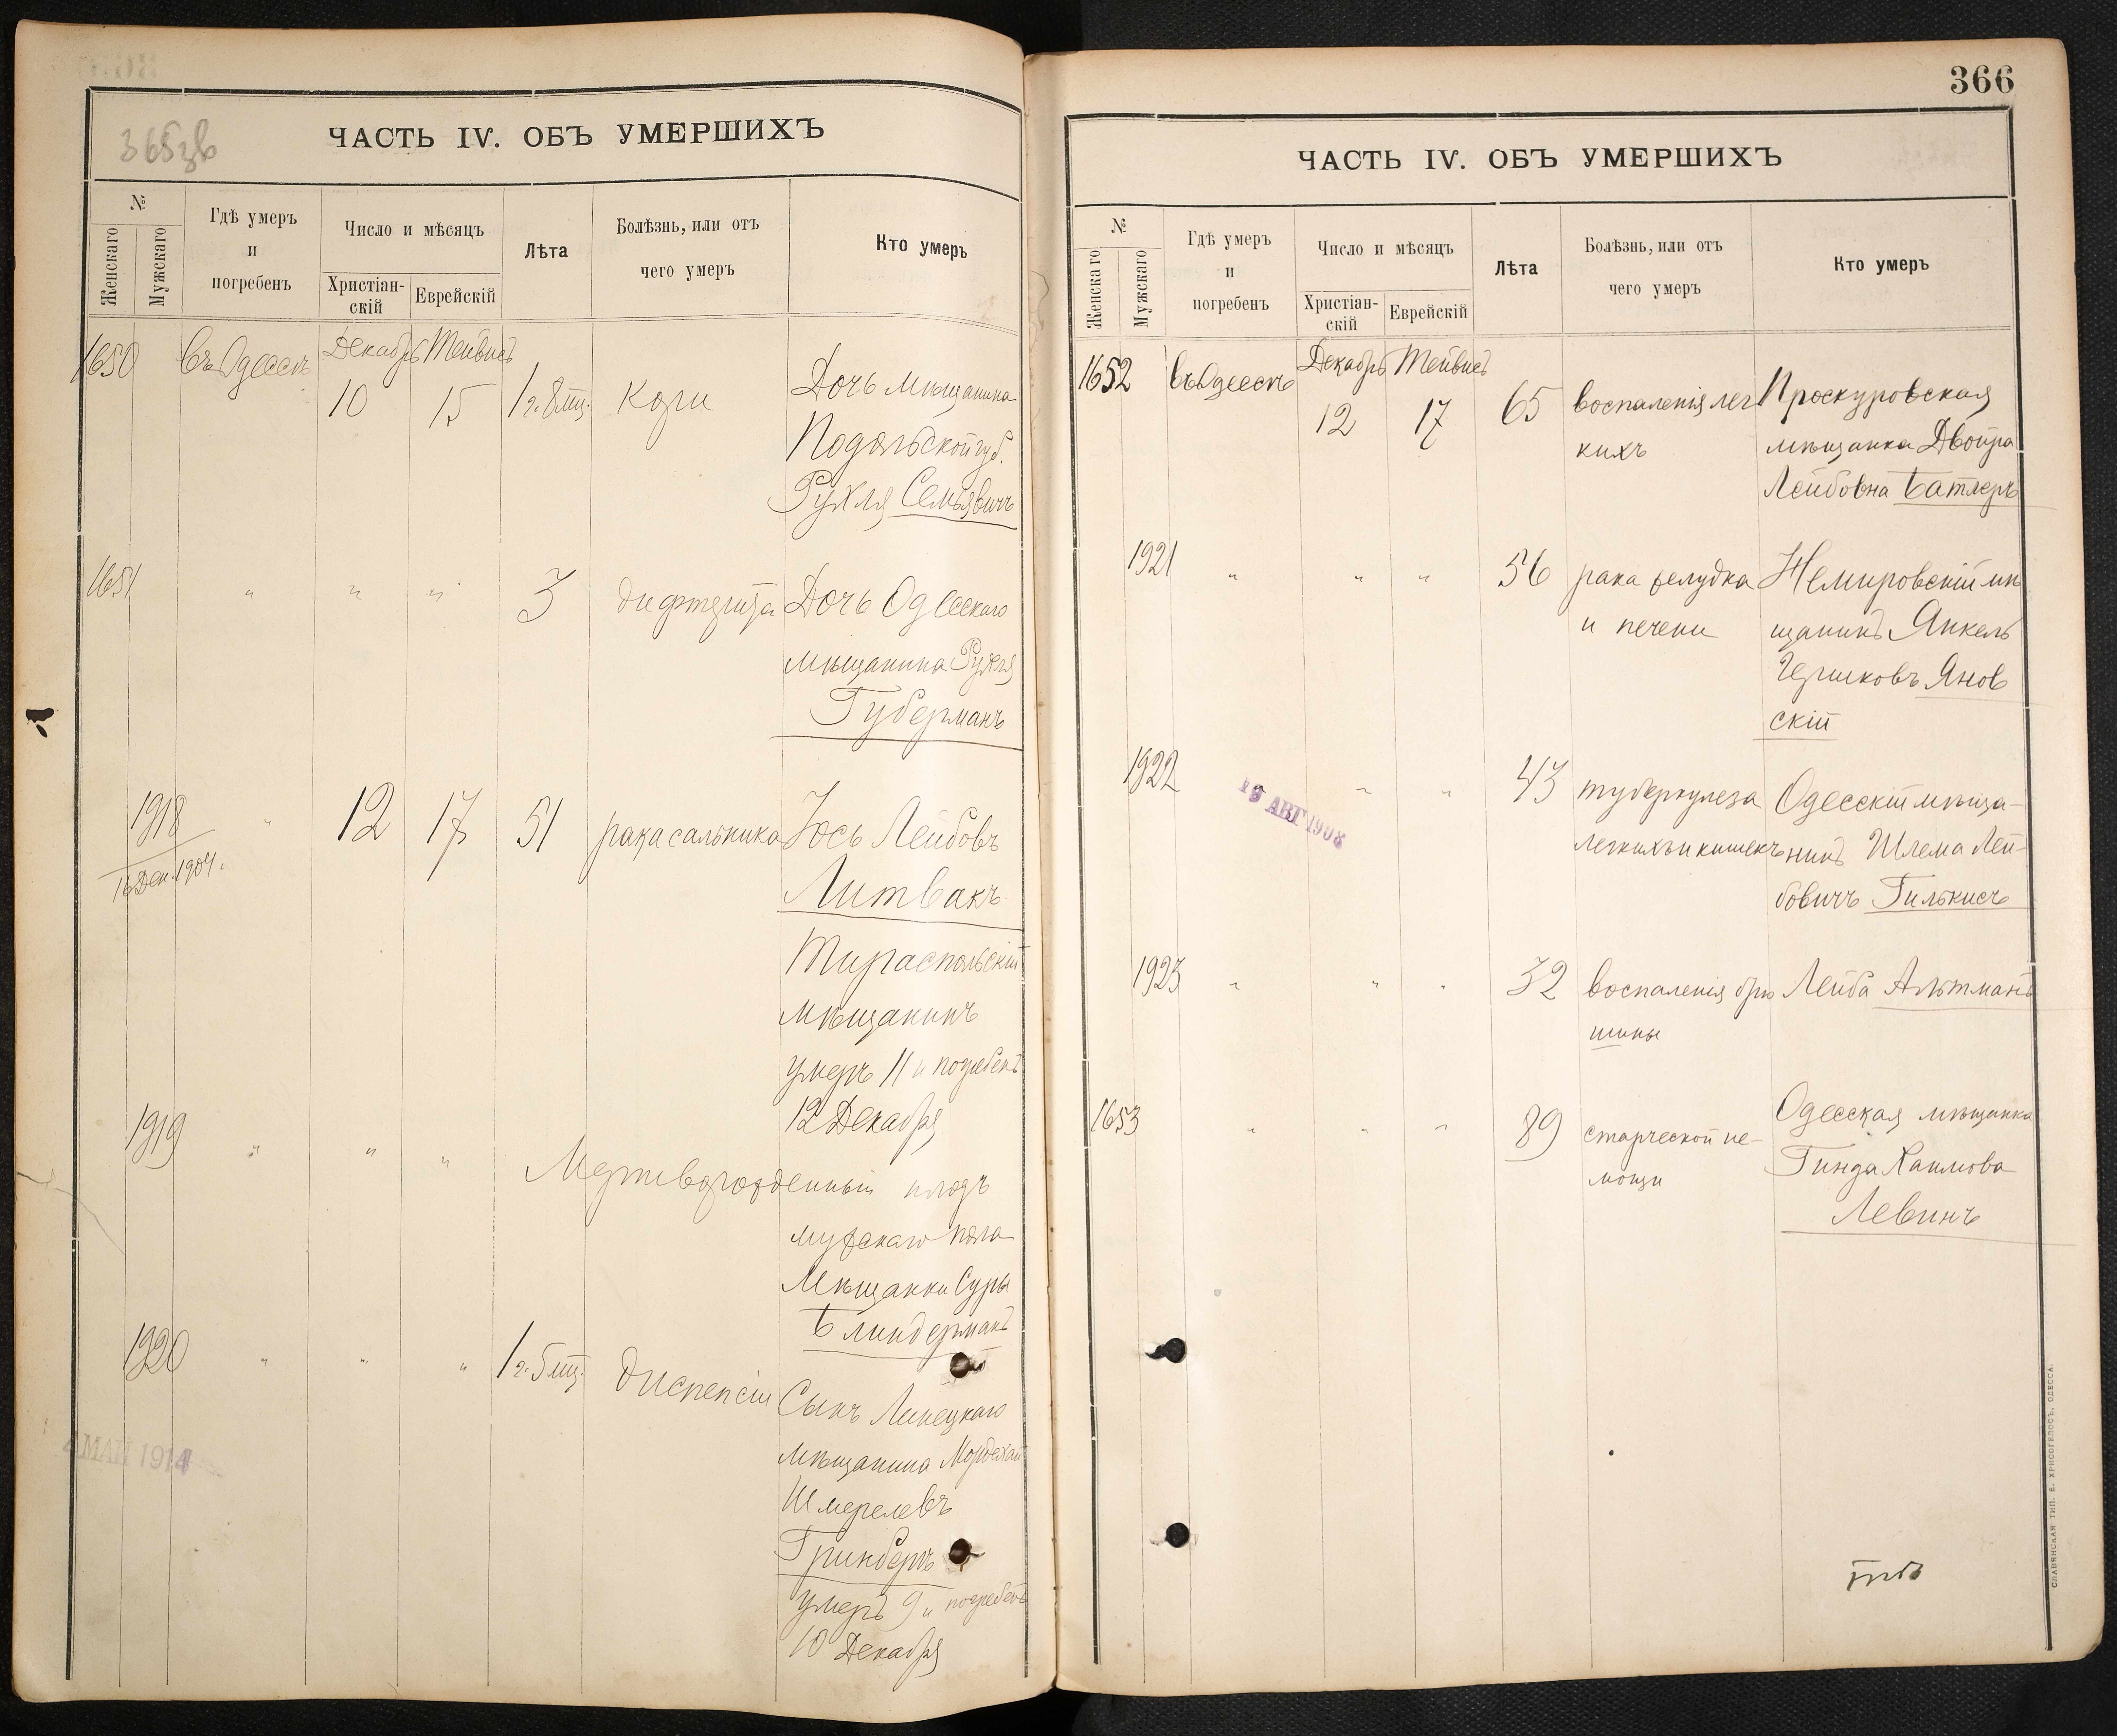 365зв
ЧАСТЬ IV. ОБЪ УМЕРШИХЪ
№
Женскаго
Мужскаго
Гдѣ умеръ
и
погребенъ
Число и мѣсяцъ
Христіан-
скій
Еврейскій
Лѣта
Болѣзнь, или отъ
чего умеръ
Кто умеръ
1650
въ Одессѣ
Декабрь
10
Тейвисъ
15
1 г. 8 мц.
кори
Дочь мѣщанина
Подольской губ.
Рухля Семьявичъ
1651
"
"
"
3
дифтерита
Дочь Одесскаго
мѣщанина Рухля
Губерманъ
1918
16 Дек. 1904.
"
12
17
51
рака сальника
Юсь Лейбовъ
Литвакъ
Тираспольскій
мѣщанинъ
умеръ 11 и погребенъ
12 Декабря
1919
"
"
"
Мертворожденный плодъ
мужскаго пола
мѣщанки Суры
Блиндерманъ
1920
"
"
"
1 г. 5 мц.
диспепсіи
Сынъ Линецкаго
мѣщанина Мордехай
Шмерелевъ
Гринбергъ
умеръ 9 и погребенъ
10 Декабря
4 МАЙ 1914
366
ЧАСТЬ IV. ОБЪ УМЕРШИХЪ
№
Женскаго
Мужскаго
Гдѣ умеръ
и
погребенъ
Число и мѣсяцъ
Христіан-
скій
Еврейскій
Лѣта
Болѣзнь, или отъ
чего умеръ
Кто умеръ
1652
въ Одессѣ
Декабрь
12
Тейвисъ
17
65
воспаленія лег
кихъ
Проскуровская
мѣщанка Двойра
Лейбовна Батлеръ
1921
"
"
"
56
рака желудка
и печени
Немировскій мѣ
щанинъ Янкель
Гершковъ Янов
скій
1922
"
"
"
43
туберкулеза
легкихъ и кишекъ
Одесскій мѣща-
нинъ Шлема Лей-
бовичъ Гилькисъ
АВГ 1908
1923
"
"
"
32
воспаленія брю
шины
Лейба Альтманъ
1653
"
"
"
89
старческой не-
мощи
Одесская мѣщанка
Гинда Хаимова
Левинъ
СЛАВЯНСКАЯ ТИП. Е. ХРИСОГЕЛОСЪ, ОДЕССА.